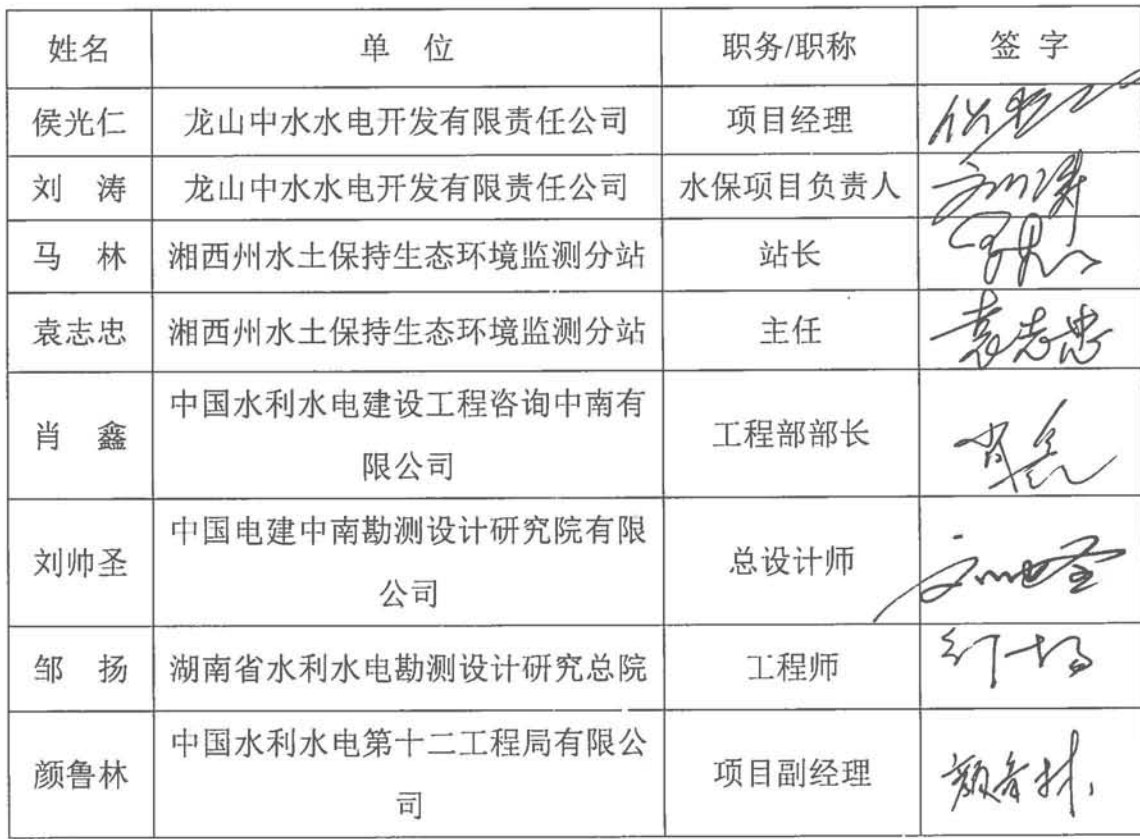 姓名 单 位 职务/职称 签 字
侯光仁 龙山中水水电开发有限责任公司 项目经理
刘 涛 龙山中水水电开发有限责任公司 水保项目负责人 刘涛
马 林 湘西州水土保持生态环境监测分站 站长
袁志忠 湘西州水土保持生态环境监测分站 主任 袁志忠
肖 鑫 中国水利水电建设工程咨询中南有
限公司 工程部部长 肖鑫
刘帅圣 中国电建中南勘测设计研究院有限
公司 总设计师 刘帅圣
邹 扬 湖南省水利水电勘测设计研究总院 工程师 邹扬
颜鲁林 中国水利水电第十二工程局有限公
司 项目副经理 颜鲁林